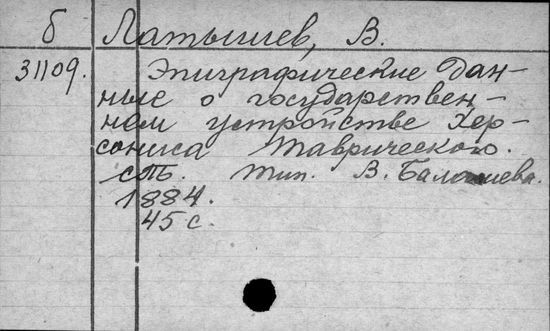 б Латышев, В.
31109. Эпиграфические дан-
ные о государствен-
ном устройстве Хер-
сониса Таврического.
спб. тип. В. Балашева.
1884.
45 с.